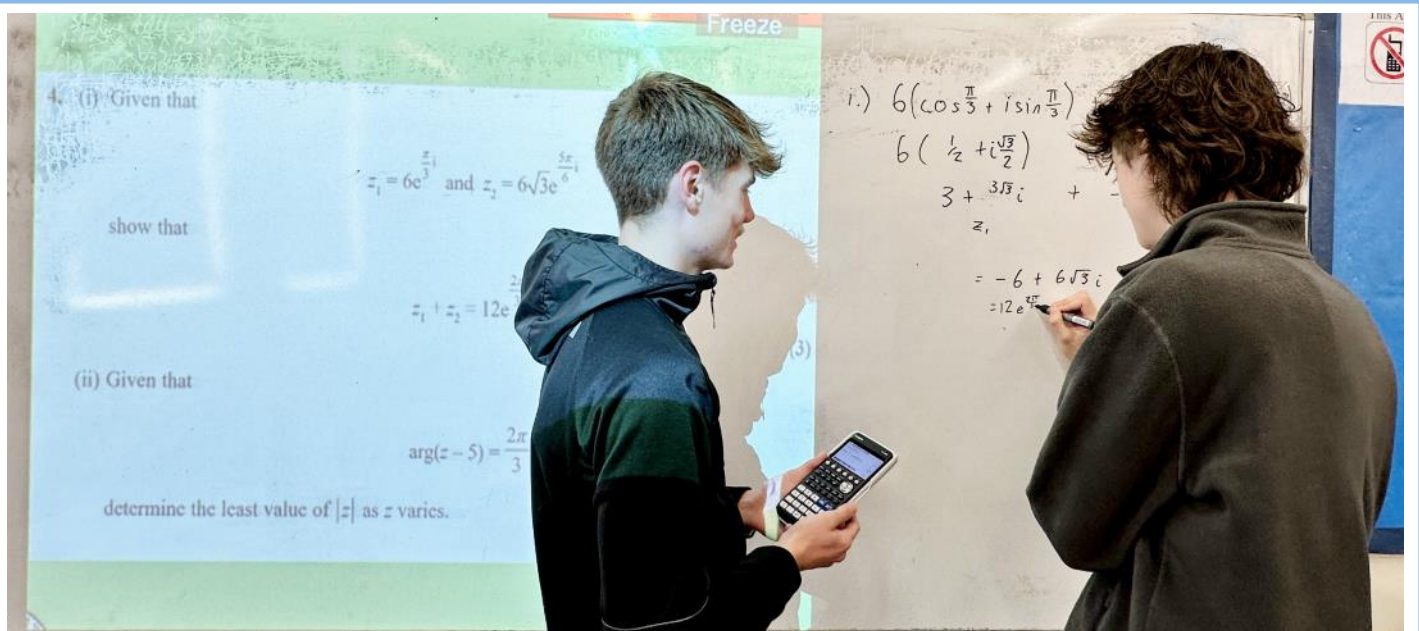 Freeze
This A
4. (i) Given that
z₁ = 6e^(π/3 i) and z₂ = 6√3e^(5π/6 i)
show that
z₁ + z₂ = 12e^2
(3)
(ii) Given that
arg(z – 5) = 2π/3
determine the least value of |z| as z varies.
i.) 6(cos π/3 + i sin π/3)
6( 1/2 + i √3/2 )
3 + 3√3 i +
z₁
= -6 + 6√3 i
= 12 e^2π